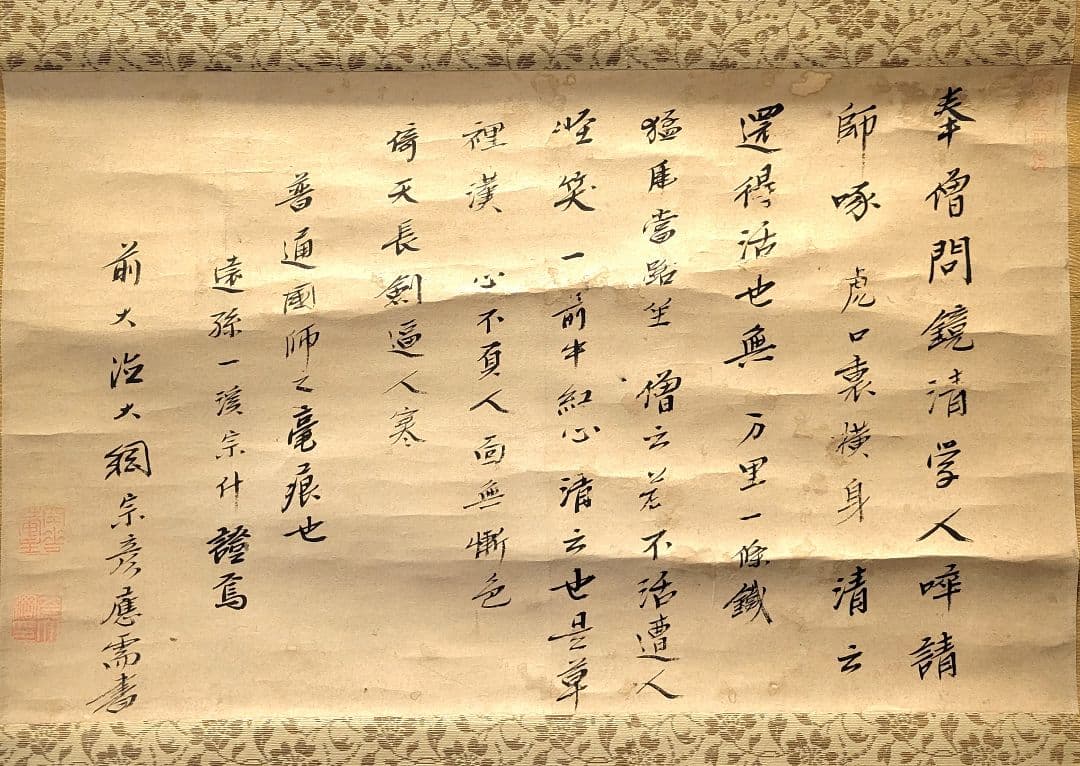 奉僧問鏡清学人啐請
師啄 虎口裏横身 清云
還得活也無 万里一條鐵
猛虎當路坐 僧云若不活遭人
怪笑 一箭中紅心 清云也是草
裡漢 心不負人面無慚色
倚天長劍逼人寒
普通國師之毫痕也
遠孫一溪宗什證焉
前大德大綱宗彦應需書